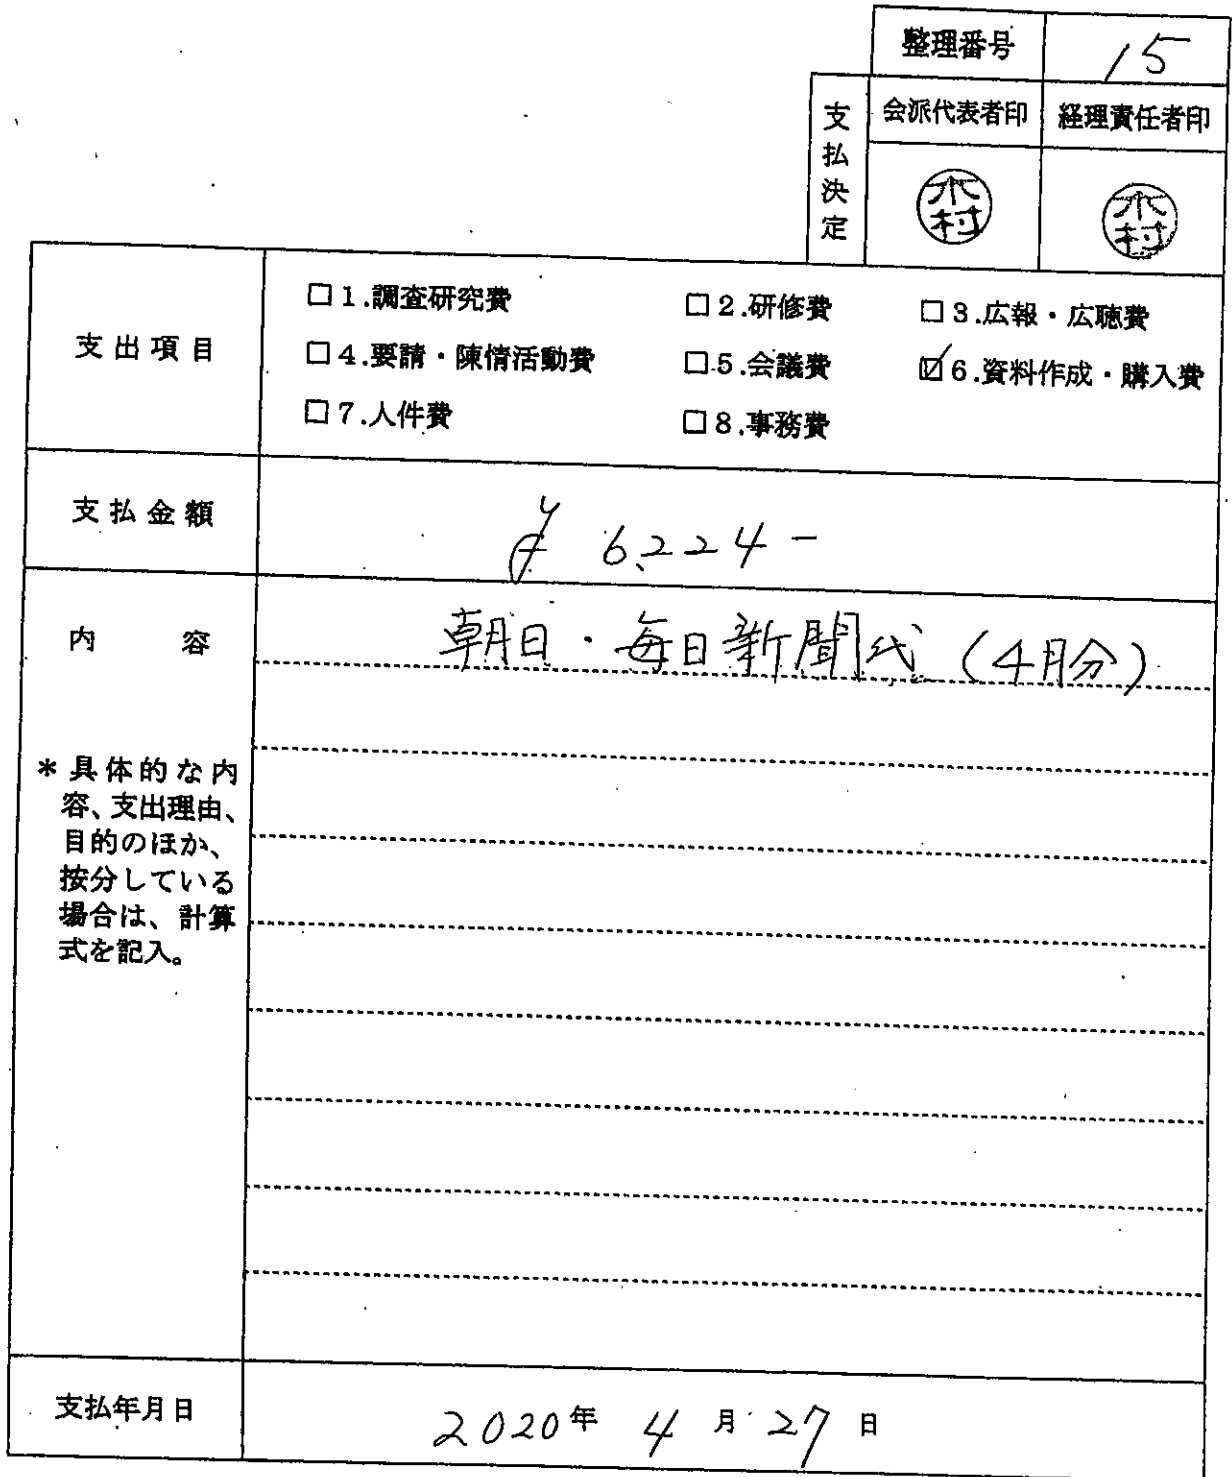 整理番号 15
支払決定 会派代表者印 経理責任者印
木村 木村
支出項目
□1.調査研究費 □2.研修費 □3.広報・広聴費
□4.要請・陳情活動費 □5.会議費 ☑6.資料作成・購入費
□7.人件費 □8.事務費
支払金額 ¥6,224-
内容 朝日・毎日新聞代(4月分)
*具体的な内
容、支出理由、
目的のほか、
按分している
場合は、計算
式を記入。
支払年月日 2020年 4月27日